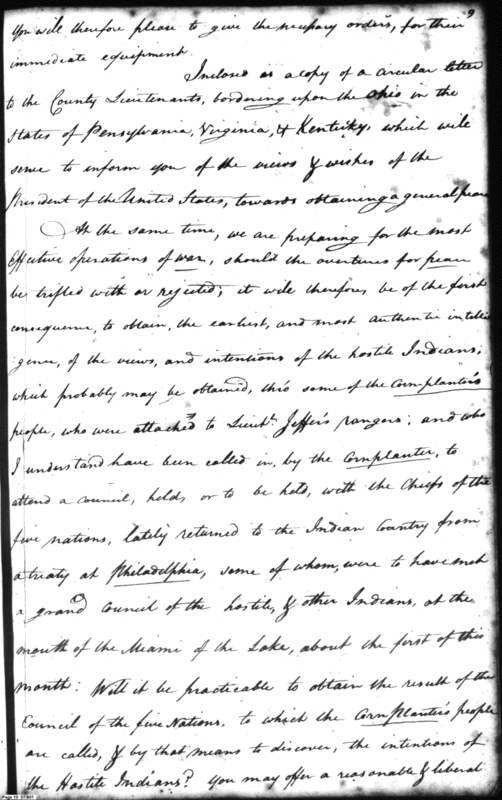 9
You will therefore please to give the necessary orders, for their
immediate equipment.
Inclosed is a copy of a circular letter
to the County Lieutenants, bordering upon the Ohio in the
States of Pensylvania, Virginia, & Kentuky, which will
serve to inform you of the views & wishes of the
President of the United States, towards obtaining a general peace
At the same time, we are preparing for the most
Effective operations of war, should the overtures for peace
be trifled with or rejected; it will therefore be of the first
consequence, to obtain, the earliest, and most authentic intelli
gence, of the views, and intentions of the hostile Indians,
which probably may be obtained, thro some of the Cornplanter's
people, who were attached to Lieut. Jeffers rangers; and who
I understand have been called in, by the Cornplanter, to
attend a council, held, or to be held, with the Chiefs of the
five nations, lately returned to the Indian Country from
a treaty at Philadelphia, some of whom, were to have met
a grand Council of the hostile, & other Indians, at the
mouth of the Miami of the Lake, about the first of this
month: Will it be practicable to obtain the result of the
Council of the five Nations, to which the Cornplanters people
are called, & by that means to discover, the intentions of
the Hostile Indians? you may offer a reasonable & liberal